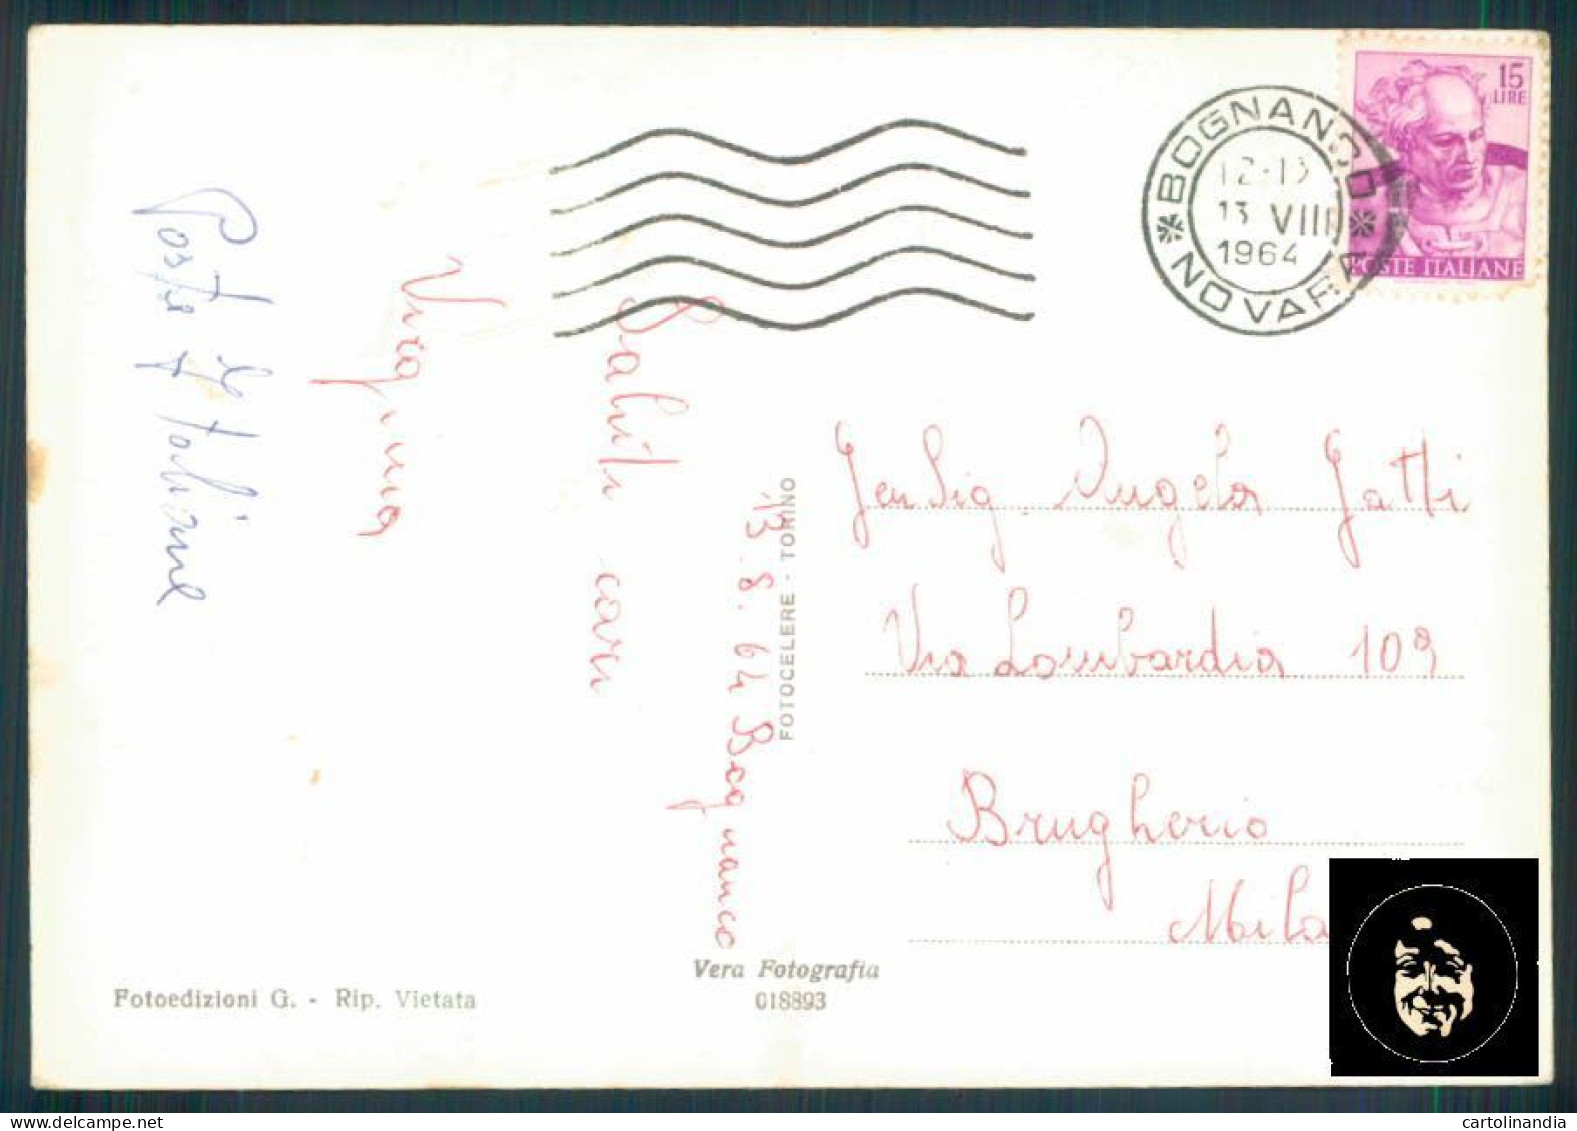 15
LIRE
POSTE ITALIANE
BOGNANCO
12-13
13 VIII
1964
NOVARA
Saluti cari
Virginia
13.8.64 Bognanco
FOTOCELERE - TORINO
Gen Sig. Angela Gatti
Via Lombardia 109
Brugherio
Mila
Vera Fotografia
018893
Fotoedizioni G. - Rip. Vietata
cartolinandia